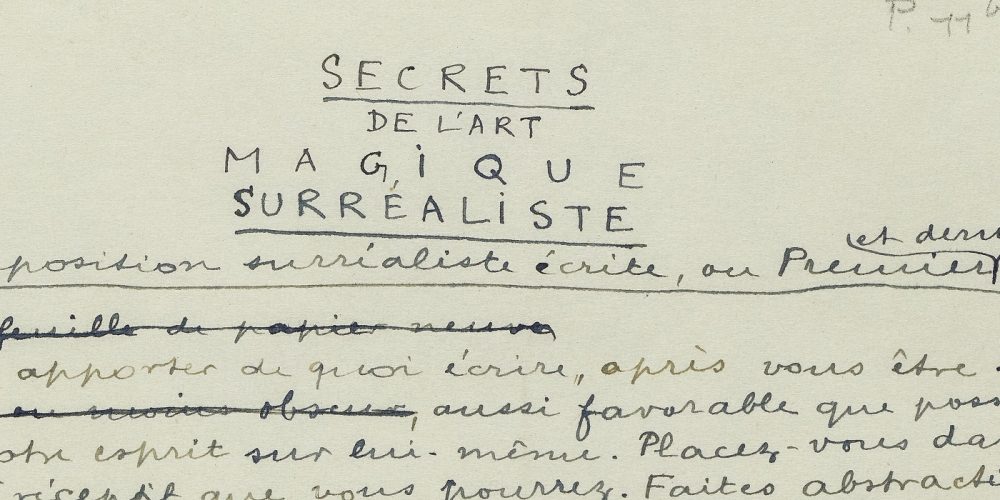 P. 11
SECRETS
DE L'ART
MAGIQUE
SURRÉALISTE
et dern
position surréaliste écrite, ou Premier
feuille de papier neuve
apporter de quoi écrire, après vous être
ou moins obscur, aussi favorable que poss
otre esprit sur lui-même. Placez-vous da
réceptif que vous pourrez. Faites abstracti